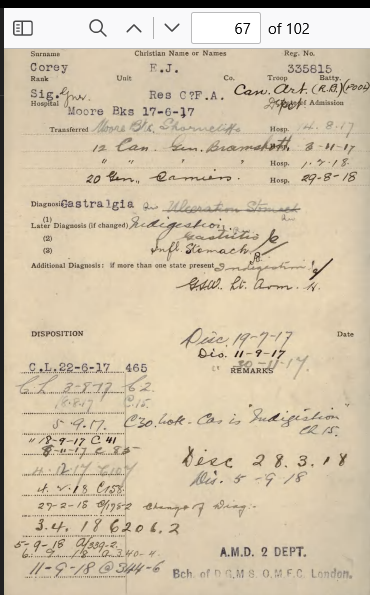 67 of 102
Surname Christian Name or Names Reg. No.
Corey E.J. 335815
Rank Unit Co. Troop Batty.
Sig. Gnr. Res C?F.A. Can. Art. (R.B)
Hospital of Admission
Moore Bks 17-6-17
Transferred Moore Bks. Shorncliffe Hosp. 14.8.17
12 Can. Gen. Bramshott Hosp. 3-11-17
" " " Hosp. 1.2.18.
20 Gen., Camiers. Hosp. 29-8-18
Diagnosis Gastralgia Ulceration Stomach
(1)
Later Diagnosis (if changed) Indigestion
(2) Gastritis
(3) Infl. Stomach
Additional Diagnosis: if more than one state present Indigestion
G.S.W. Lt. Arm.
DISPOSITION Date
Disc 19-7-17
Dis. 11-9-17
" 30-11-17.
C.L. 22-6-17 465 REMARKS
C.L. 3-8-17 C2.
18.8.17 C.15.
5-9.17. C30. Cas is "Indigestion
CL 15.
" 18-9-17 C41
8-11-17 C 85
Disc 28.3.18
Dis. 5-9 18
4.2.18 C158
27-2-18 Change of Diag.
3.4.18 6206.2
5-9-18 A/339-2.
6.9.18 a.340-4.
11-9-18 @344-6
A.M.D. 2 DEPT.
Bch. of D.G.M.S. O.M.F.C. London.